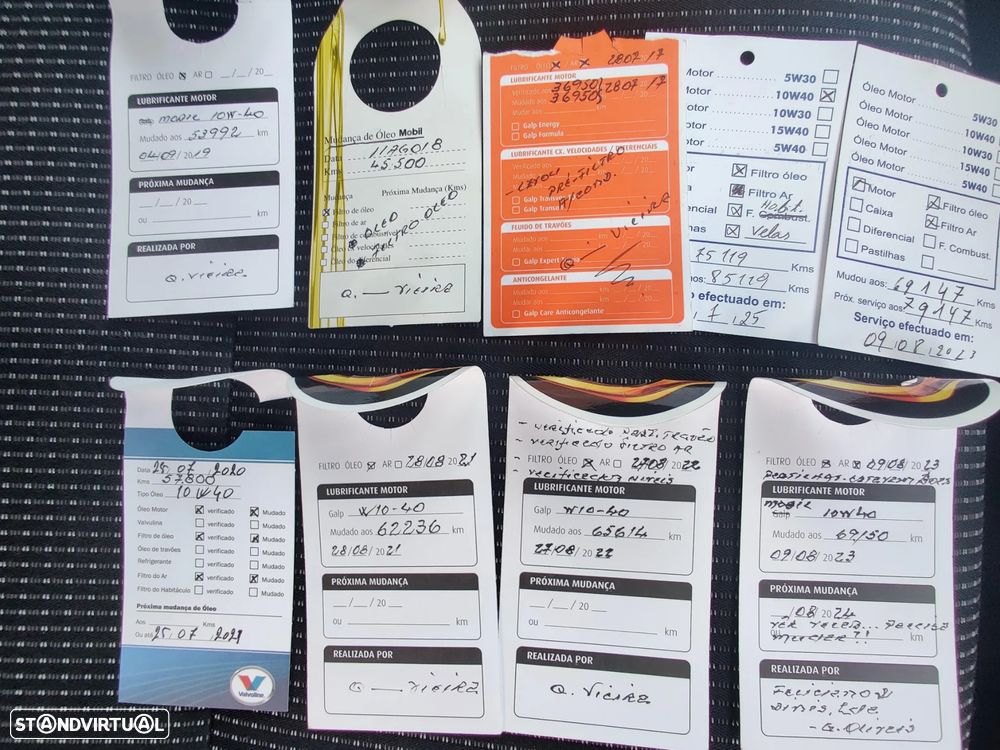 FILTRO ÓLEO ☒ AR ☐ __/__/20__
LUBRIFICANTE MOTOR
MOBIL 10W-40
Mudado aos 53992 km
04/09/2019
PRÓXIMA MUDANÇA
__/__/20__
ou km
REALIZADA POR
Q. Vieira
Mudança de Óleo Mobil
Data 11AGO18
Kms 45.500
Próxima Mudança (Kms)
Mudança
☒ Filtro de óleo
Filtro de ar
Filtro de combustível
Óleo velocidades
Óleo do diferencial
ÓLEO
FILTRO OLEO
Q. — Vieira
FILTRO ÓLEO ☒ AR ☒ 28 07 17
LUBRIFICANTE MOTOR
Verificado aos 36950 28 07 17
Mudado aos 36950
Mudar aos
Galp Energy
Galp Formula
LUBRIFICANTE CX. VELOCIDADES DIFERENCIAIS
Verificado aos
Mudado aos
Galp Transv
Galp Transm
FLUIDO DE TRAVÕES
Mudado aos
Mudar aos
Galp Expert
Q — Vieira
ANTICONGELANTE
Mudado aos
Mudar aos
Galp Care Anticongelante
Motor 5W30
10W40 ☒
10W40
15W40
5W40
☒ Filtro óleo
Filtro Ar
☒ F. Combust. Habit.
☒ Velas
75119 Kms
aos: 85119 Kms
efectuado em:
7, 25
Óleo Motor 5W30
Óleo Motor 10W40
Óleo Motor 10W40
Óleo Motor 15W40
Óleo Motor 5W40
Motor
Caixa
Diferencial
Pastilhas
☒ Filtro óleo
☒ Filtro Ar
F. Combust.
Mudou aos: 69147 Kms
Próx. serviço aos: 79147 Kms
Serviço efectuado em:
09, 08, 2023
Data 25 07 2020
Kms 57.800
Tipo Óleo 10W40
Óleo Motor ☒ verificado ☒ Mudado
Valvulina verificado Mudado
Filtro de óleo ☒ verificado ☒ Mudado
Óleo de travões verificado Mudado
Refrigerante verificado Mudado
Filtro do Ar ☒ verificado ☒ Mudado
Filtro do Habitáculo verificado Mudado
Próxima mudança de Óleo
Aos Kms
Ou até 25, 07, 2021
Valvoline
FILTRO ÓLEO ☒ AR ☐ 28/08/2021
LUBRIFICANTE MOTOR
Galp W10-40
Mudado aos 62236 km
28/08/2021
PRÓXIMA MUDANÇA
__/__/20__
ou km
REALIZADA POR
Q — Vieira
- verificado Past. Travão
- verificado FILTRO AR
FILTRO ÓLEO ☒ AR ☐ 27/08/2022
- verificado niveis
LUBRIFICANTE MOTOR
Galp W10-40
Mudado aos 65614 km
27/08/2022
PRÓXIMA MUDANÇA
__/__/20__
ou km
REALIZADA POR
Q. Vieira
FILTRO ÓLEO ☒ AR ☒ 09/08/2023
LUBRIFICANTE MOTOR
MOBIL
Galp 10W40
Mudado aos 69150 km
09/08/2023
PRÓXIMA MUDANÇA
__/08/2024
ou km
REALIZADA POR
STANDVIRTUAL